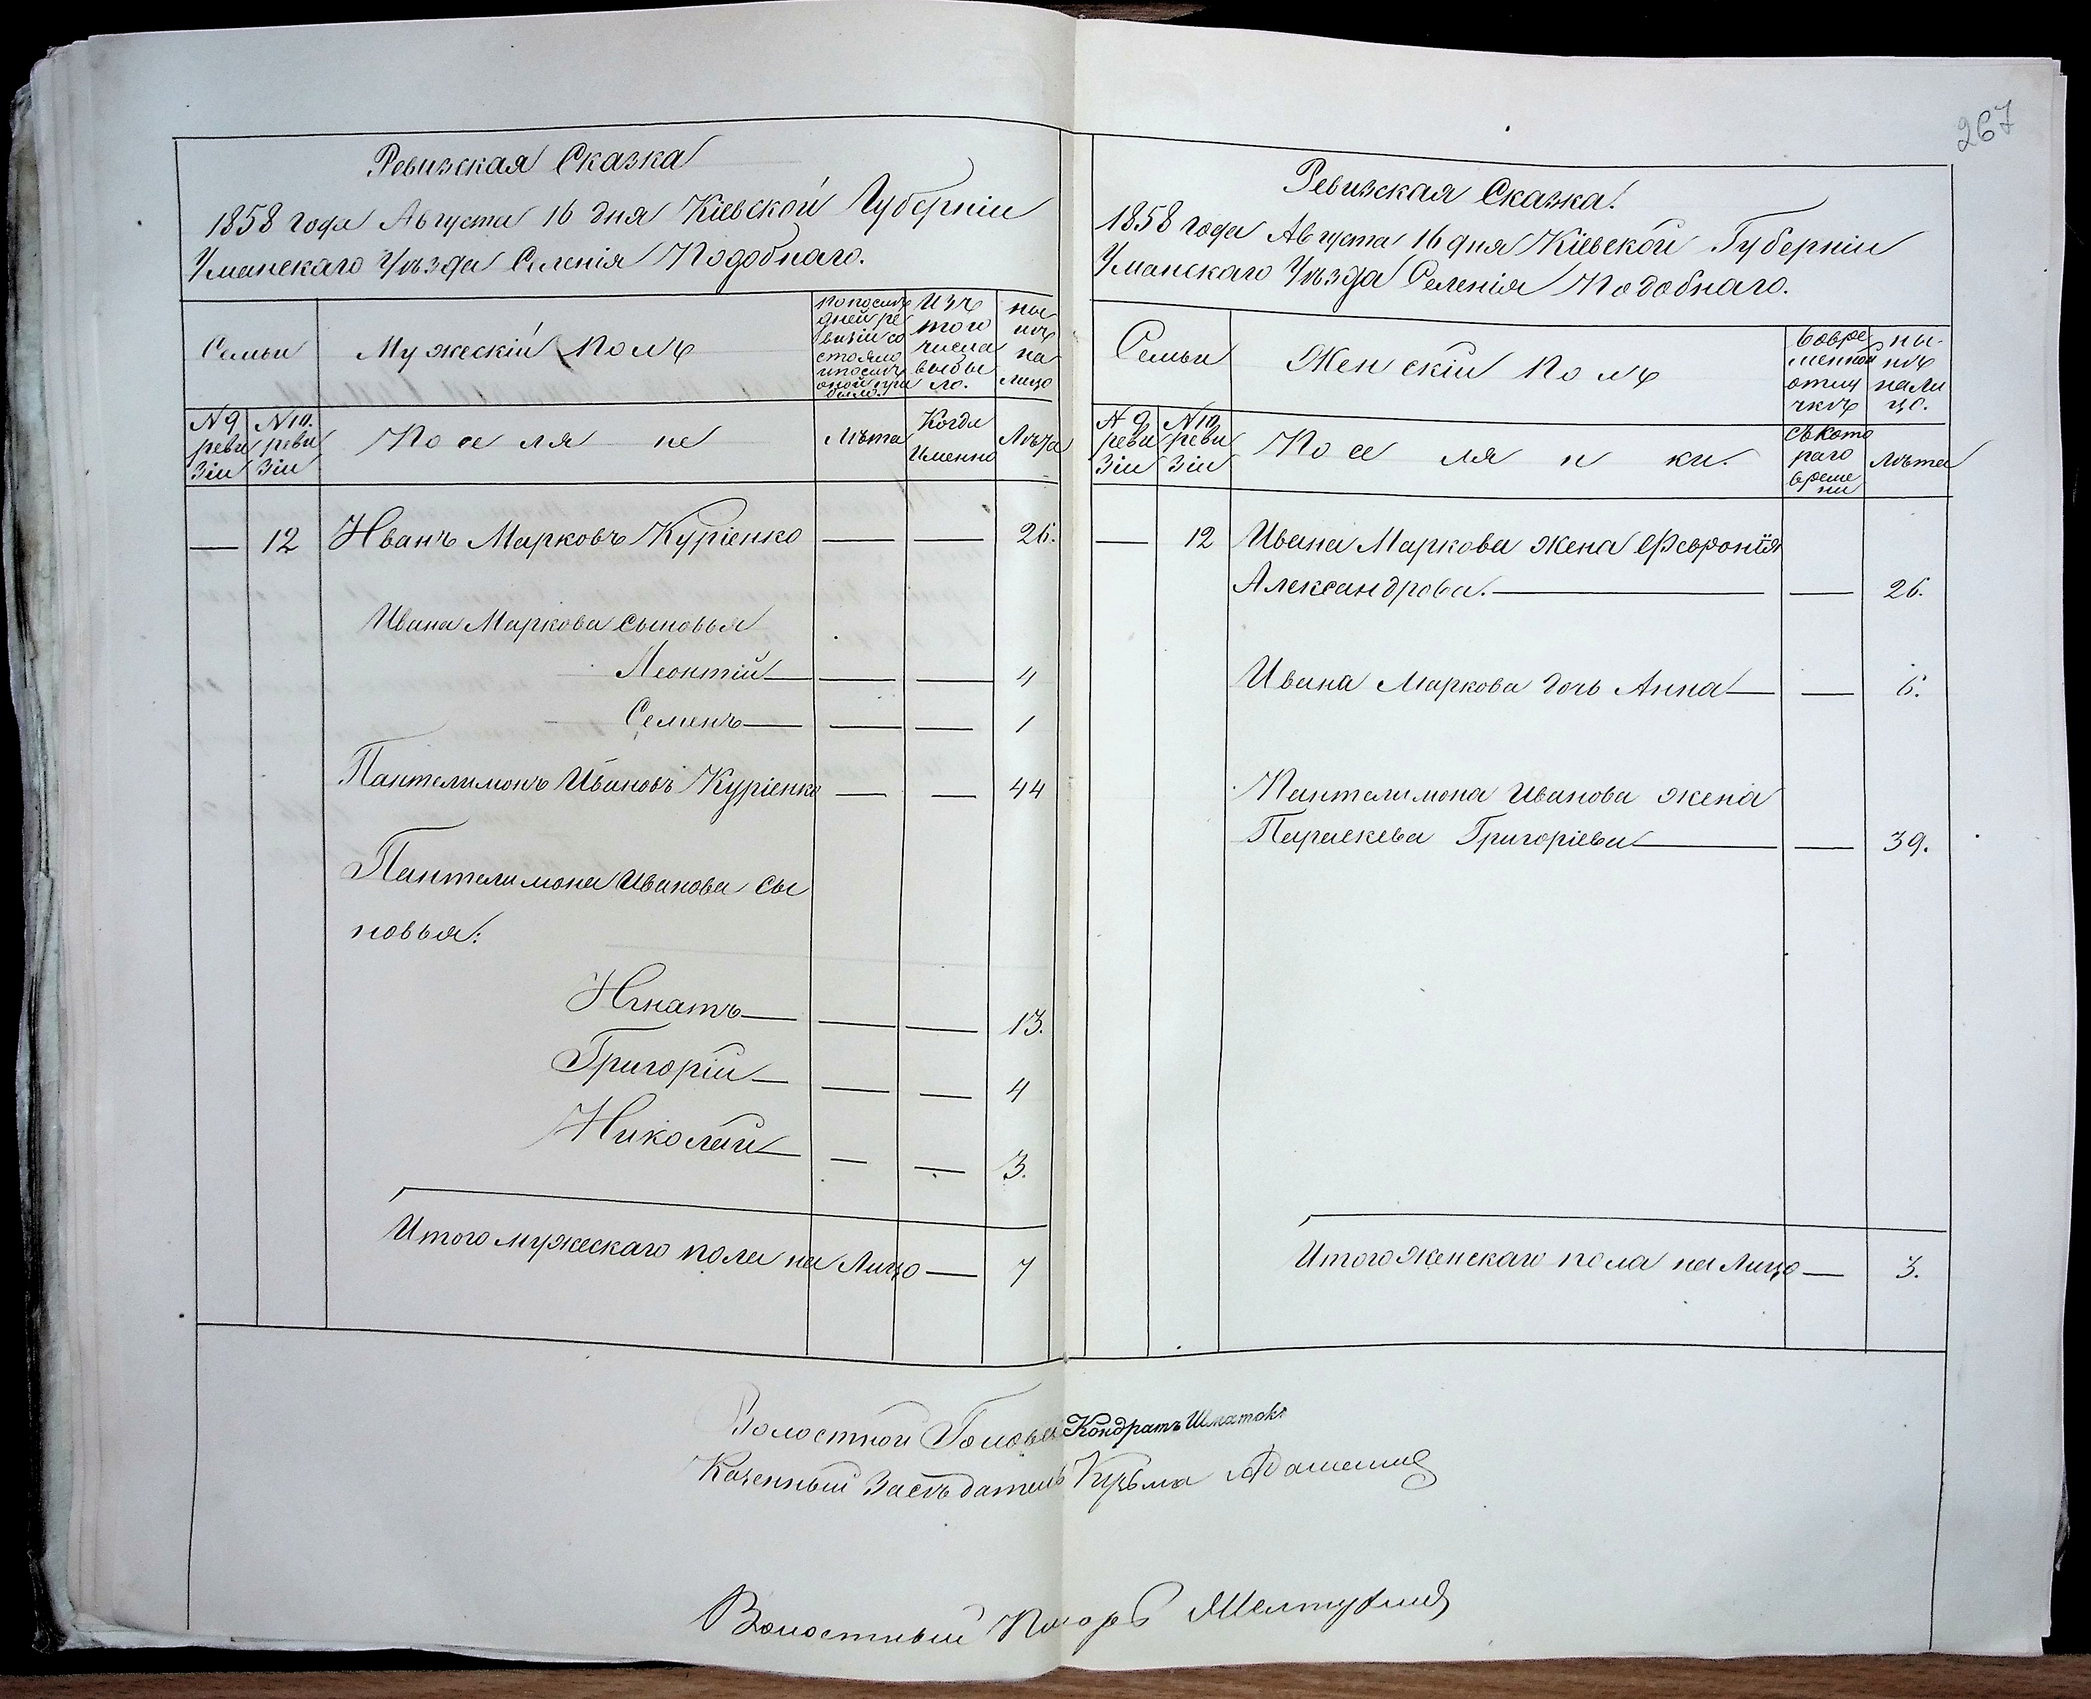 267
Ревизская Сказка
1858 года Августа 16 дня Кіевской Губерніи
Уманскаго Уѣзда Селенія Подобнаго.
Семьи
Мужескій Полъ
по послѣ
дней ре
визіи со
стояло
и послѣ
оной при
было.
Изъ
того
числа
выбы
ло.
ны
нѣ
на
лицо
№ 9
реви
зіи
№ 10.
реви
зіи
Поселяне
Лѣта
Когда
Именно
Лѣта
— 12 Иванъ Марковъ Куріенко — — 26.
Ивана Маркова сыновья
Леонтій — — — 4
Семенъ — — — 1
Пантелимонъ Ивановъ Куріенко — — 44
Пантелимона Иванова сы
новья:
Игнатъ — — — 13.
Григорій — — — 4
Николай — — — 3.
Итого мужескаго пола на Лицо — 7
Ревизская Сказка.
1858 года Августа 16 дня Кіевской Губерніи
Уманскаго Уѣзда Селенія Подобнаго.
Семьи
Женскій Полъ
Вовре
менной
отлу
чкѣ
ны-
нѣ
на ли
цо.
№ 9
реви
зіи
№ 10.
реви
зіи
Поселянки.
Съ кото
раго
време
ни
Лѣта
— 12 Ивана Маркова жена Февронія
Александрова. — — 26.
Ивана Маркова дочь Анна — — 6.
Пантелимона Иванова жена
Параскева Григоріева — — 39.
Итого женскаго пола на Лицо — 3.
Волостной Голова Кондратъ Шматокъ
Казенный Засѣдатель Кузьма
Волостный Писарь